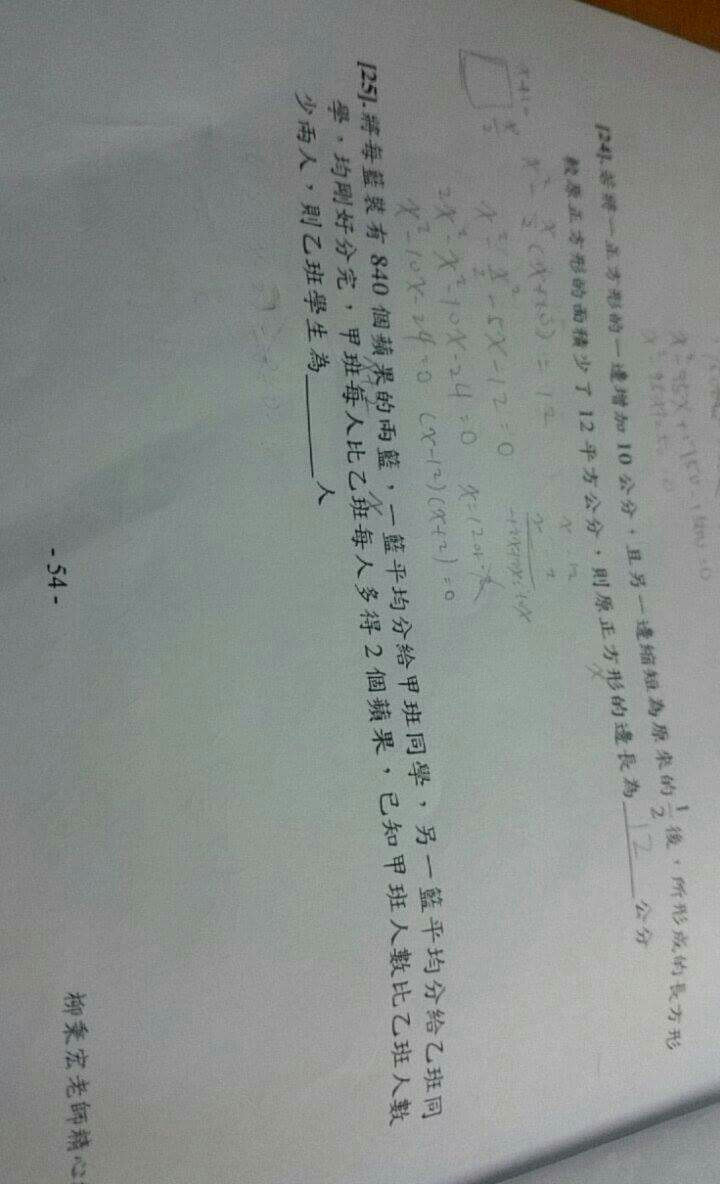 [24].若將一正方形的一邊增加10公分，且另一邊縮短為原來的1/2後，所形成的長方形
較原正方形的面積少了12平方公分，則原正方形的邊長為 12 公分
x
x² - x/2 (x+10) = 12
x² - x²/2 - 5x - 12 = 0
2x² - x² - 10x - 24 = 0
x² - 10x - 24 = 0 (x-12)(x+2) = 0
[25].將每籃裝有840個蘋果的兩籃，一籃平均分給甲班同學，另一籃平均分給乙班同
學，均剛好分完，甲班每人比乙班每人多得2個蘋果，已知甲班人數比乙班人數
少兩人，則乙班學生為______人
- 54 -
柳秉宏老師精心